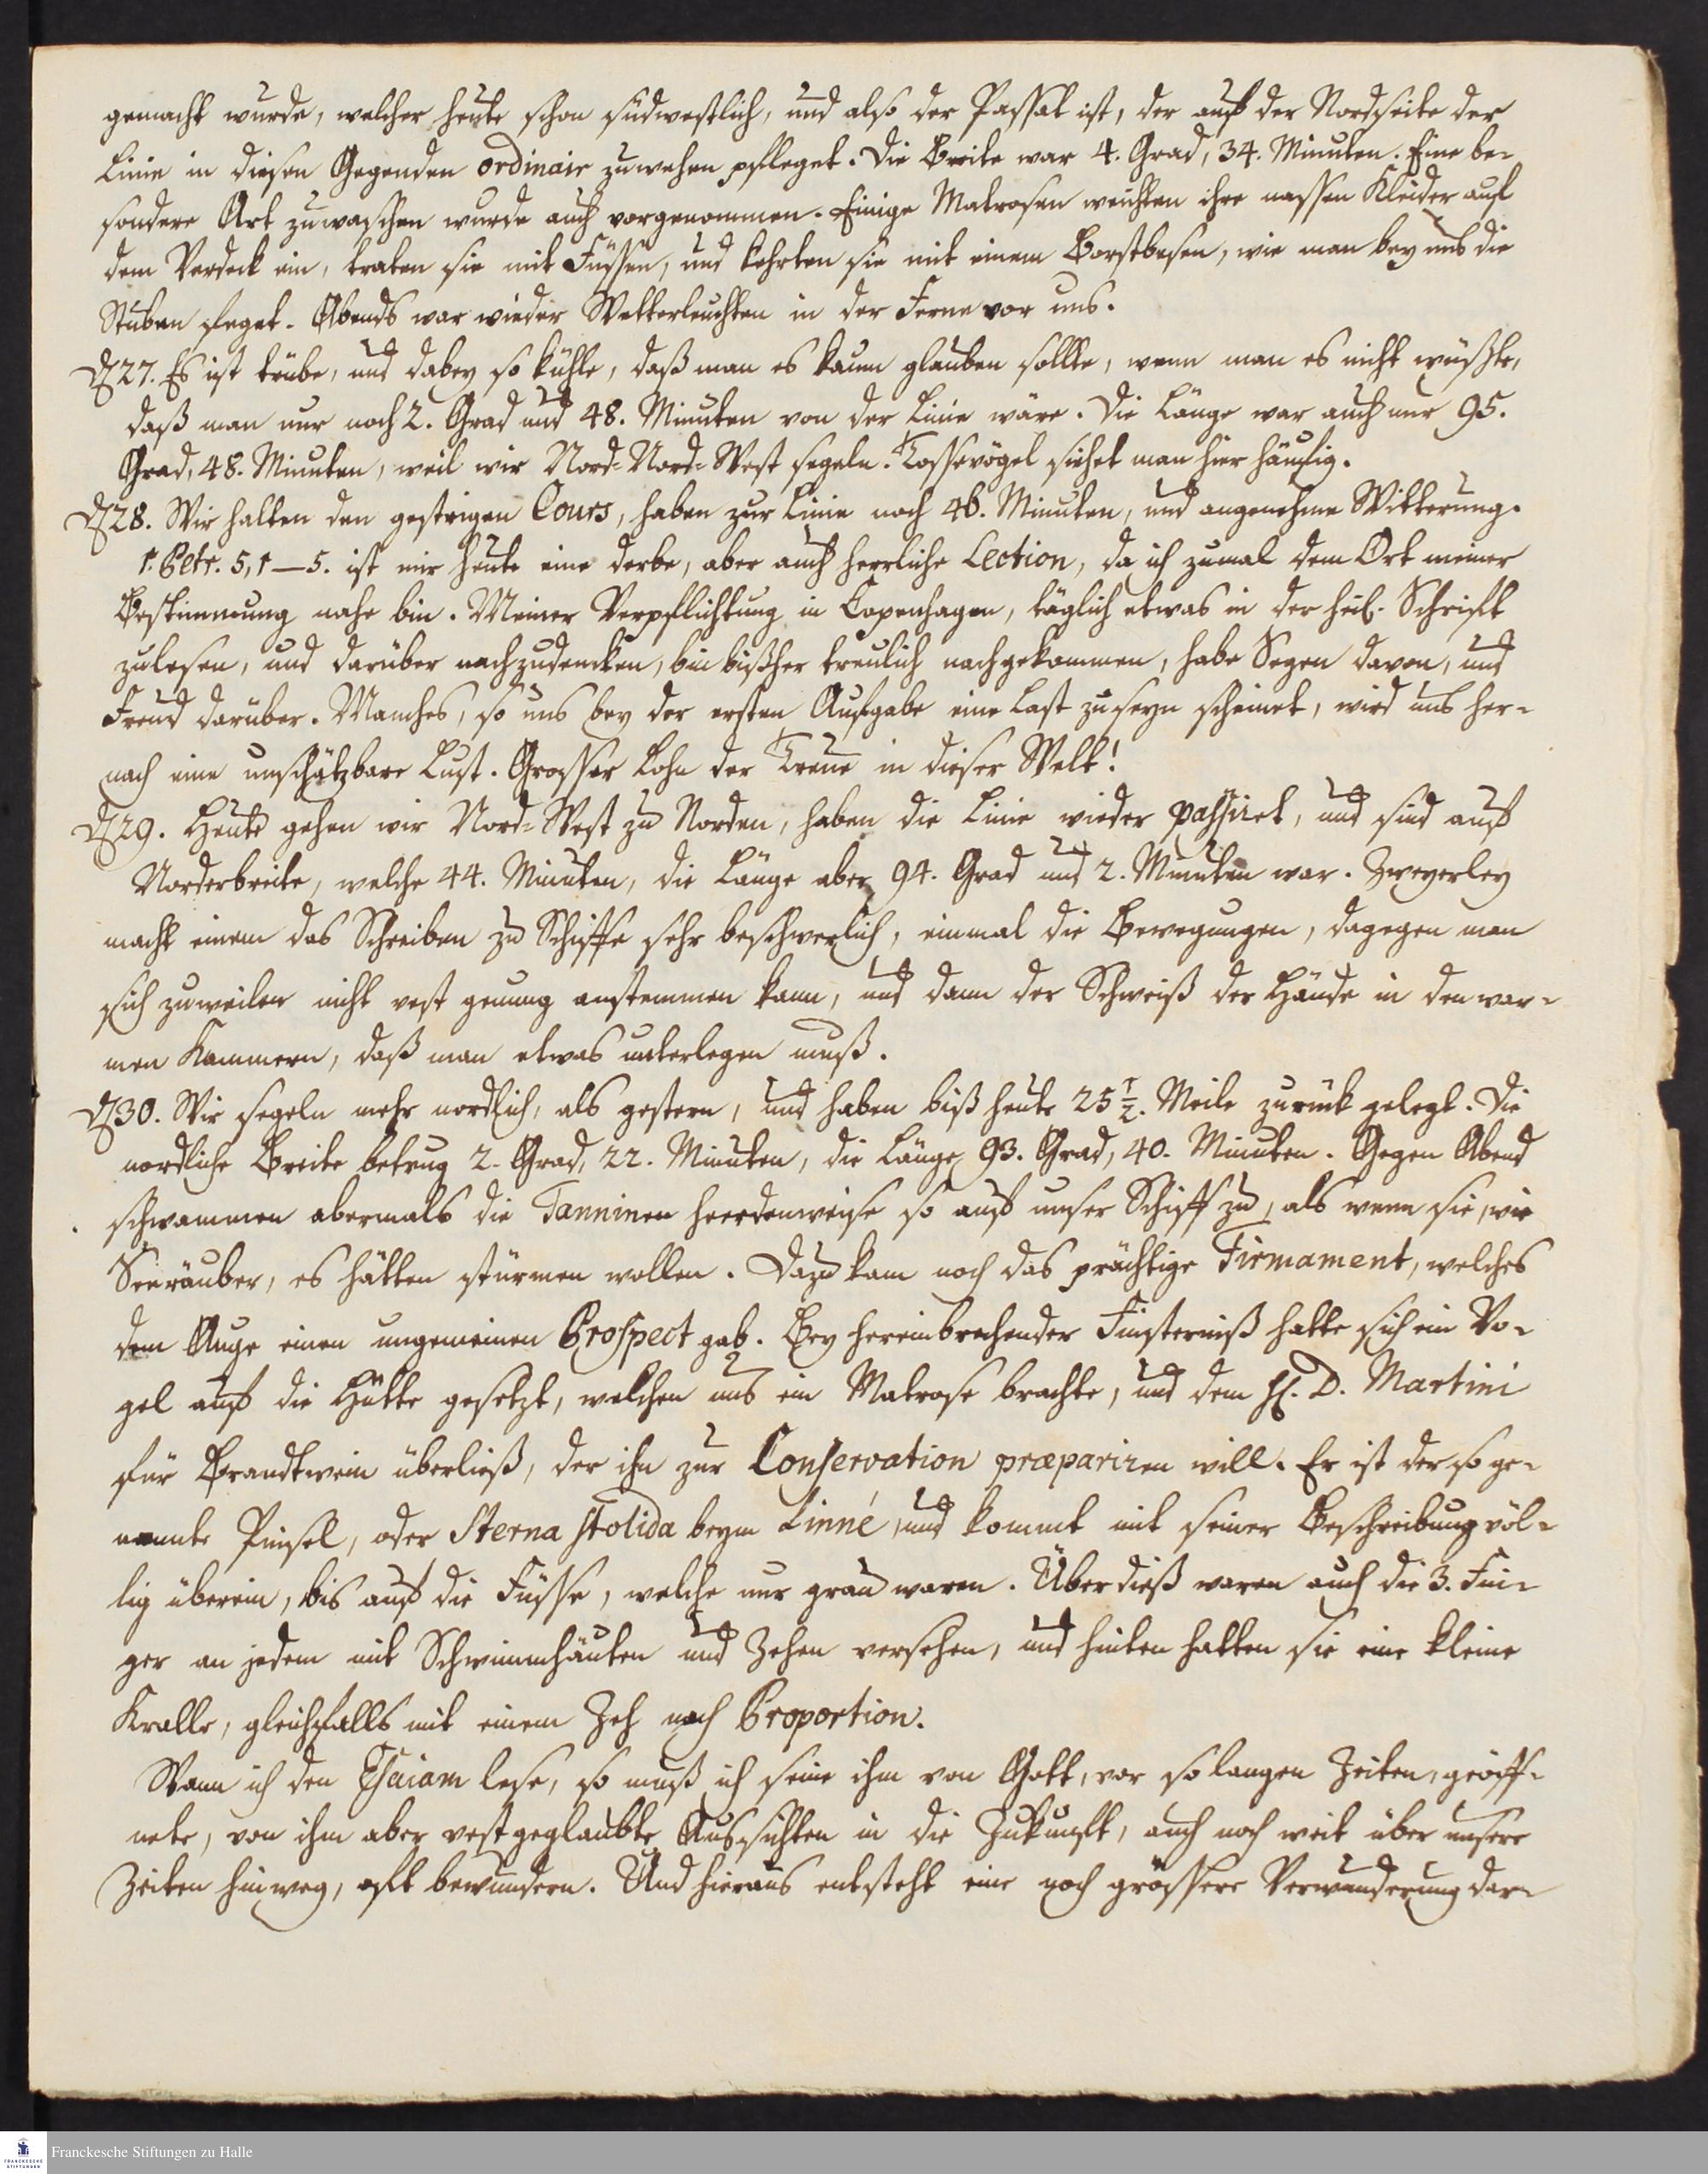 gemacht wurde, welcher heute schon südwestlich, und also der Passat ist, der auf der Nordseite der
Linie in diesen Gegenden ordinair zuwehen pfleget. Die Breite war 4. Grad, 34. Minuten. Eine be-
sondere Art zuwaschen wurde auch vorgenommen. Einige Matrosen weichten ihre nassen Kleider auf
dem Verdeck ein, traten sie mit Füssen, und kehrten sie mit einem Borstbesen, wie man bey uns die
Stuben feget. Abends war wieder Wetterleuchten in der Ferne vor uns.
D 27. Es ist trübe, und dabey so kühle, daß man es kaum glauben sollte, wenn man es nicht wüßte,
daß man nur noch 2. Grad und 48. Minuten von der Linie wäre. Die Länge war auch nur 95.
Grad, 48. Minuten, weil wir Nord-Nord-West segeln. Tossevögel siehet man hier häufig.
D 28. Wir halten den gestrigen Cours, haben zur Linie noch 46. Minuten, und angenehme Witterung.
1. Petr. 5, 1–5. ist mir heute eine derbe, aber auch herrliche Lection, da ich zumal dem Ort meiner
Bestimmung nahe bin. Meiner Verpflichtung in Copenhagen, täglich etwas in der heil. Schrift
zulesen, und darüber nachzudencken, bin bißher treulich nachgekommen, habe Segen davon, und
Freud darüber. Manches, so uns bey der ersten Aufgabe eine Last zu seyn scheinet, wird uns her-
nach eine unschätzbare Lust. Grosser Lohn der Treue in dieser Welt!
D 29. Heute gehen wir Nord-West zu Norden, haben die Linie wieder passiret, und sind auf
Norderbreite, welche 44. Minuten, die Länge aber 94. Grad und 2. Minuten war. Zweyerley
macht einem das Schreiben zu Schiffe sehr beschwerlich, einmal die Bewegungen, dagegen man
sich zuweilen nicht vest genung anstemmen kann, und dann der Schweiß der Hände in den war-
men Kammern, daß man etwas unterlegen muß.
D 30. Wir segeln mehr nordlich, als gestern, und haben biß heute 25 1/2. Meile zurück gelegt. Die
nordliche Breite betrug 2. Grad, 22. Minuten, die Länge 93. Grad, 40. Minuten. Gegen Abend
schwammen abermals die Tanninen heerdenweise so auf unser Schiff zu, als wenn sie, wie
Seeräuber, es hätten stürmen wollen. Dazu kam noch das prächtige Firmament, welches
dem Auge einen ungemeinen Prospect gab. Bey hereinbrechender Finsterniß hatte sich ein Vo-
gel auf die Hütte gesetzt, welchen uns ein Matrose brachte, und dem H. D. Martini
für Brandtwein überließ, der ihn zur Conservation præpariren will. Er ist der so ge-
nannte Pinsel, oder Sterna stolida beym Linné, und kommt mit seiner Beschreibung völ-
lig überein, bis auf die Füsse, welche nur grau waren. Über dieß waren auch die 3. Fin-
ger an jedem mit Schwimmhäuten und Zehen versehen, und hinten hatten sie eine kleine
Kralle, gleichfalls mit einem Zeh nach Proportion.
Wann ich den Esaiam lese, so muß ich seine ihm von Gott, vor so langen Zeiten, geöff-
nete, von ihm aber vest geglaubte Aussichten in die Zukunft, auch noch weit über unsere
Zeiten hinweg, oft bewundern. Und hieraus entsteht eine noch grössere Verwunderung dar-
Franckesche Stiftungen zu Halle
FRANCKESCHE
STIFTUNGEN